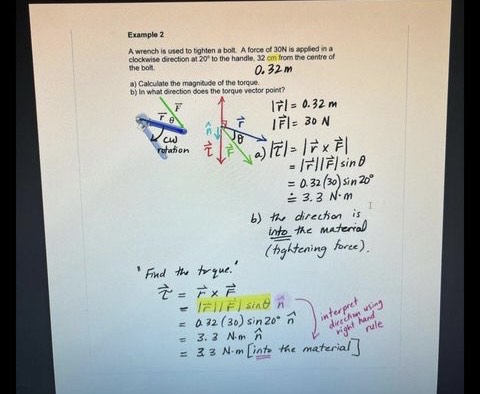 Example 2
A wrench is used to tighten a bolt. A force of 30N is applied in a
clockwise direction at 20° to the handle, 32 cm from the centre of
the bolt.
0.32 m
a) Calculate the magnitude of the torque.
b) In what direction does the torque vector point?
|r⃗| = 0.32 m
|F⃗| = 30 N
r⃗ θ F⃗
CW
rotation
n̂ τ⃗ r⃗ θ F⃗
a) |τ⃗| = |r⃗ x F⃗|
= |r⃗||F⃗| sin θ
= 0.32 (30) sin 20°
≐ 3.3 N·m
b) the direction is
into the material
(tightening force).
"Find the torque."
τ⃗ = r⃗ x F⃗
= |r⃗||F⃗| sin θ n̂
= 0.32 (30) sin 20° n̂
= 3.3 N·m n̂
= 3.3 N·m [into the material]
interpret
direction using
right hand
rule